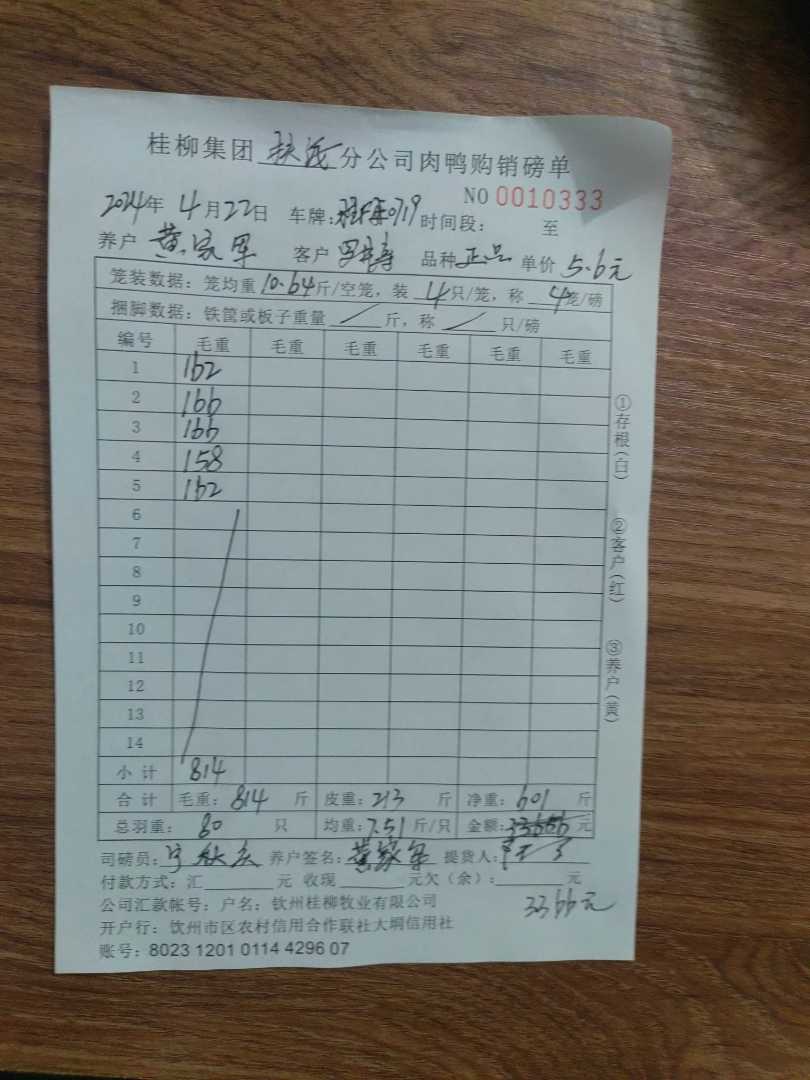 桂柳集团 分公司肉鸭购销磅单
NO 0010333
2024年 4月22日 车牌: 0719 时间段: 至
养户 黄家军 客户 品种 正品 单价 5.6元
笼装数据: 笼均重 10.64斤/空笼, 装 4只/笼, 称 4笼/磅
捆脚数据: 铁筐或板子重量 / 斤, 称 / 只/磅
编号 毛重 毛重 毛重 毛重 毛重 毛重
1 162
2 166
3 166
4 158
5 162
6
7
8
9
10
11
12
13
14
小计 814
合计 毛重: 814 斤 皮重: 213 斤 净重: 601 斤
总羽重: 80 只 均重: 7.51斤/只 金额: 元
司磅员: 养户签名: 黄家军 提货人:
付款方式: 汇 元 收现 元欠(余): 元
公司汇款帐号: 户名: 钦州桂柳牧业有限公司 3366元
开户行: 钦州市区农村信用合作联社大垌信用社
账号: 8023 1201 0114 4296 07
①存根(白) ②客户(红) ③养户(黄)